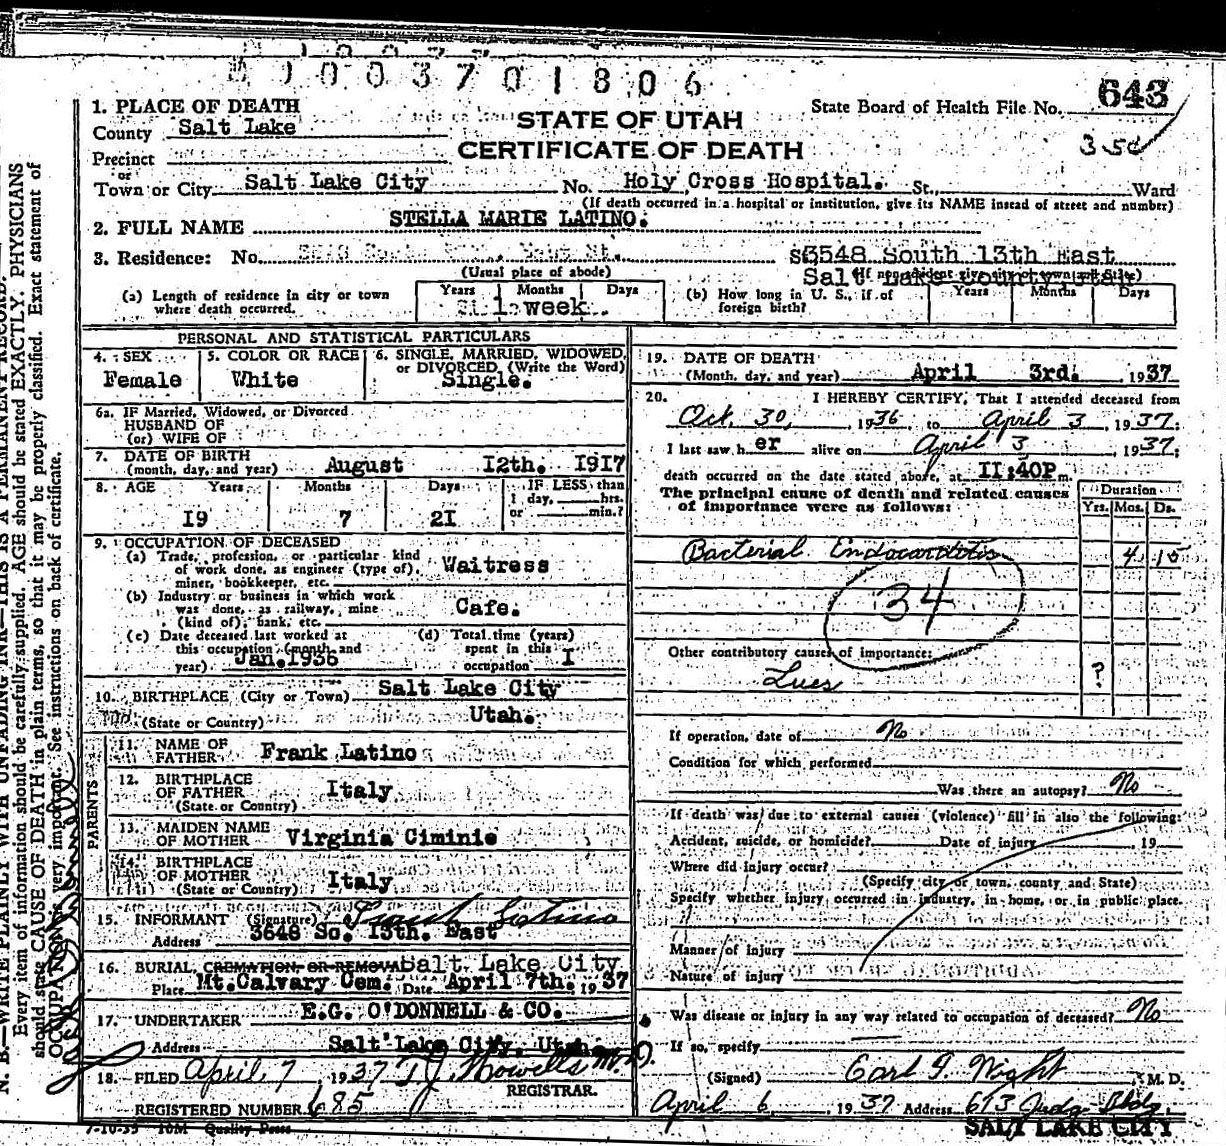 1003701806
643
State Board of Health File No.
350
1. PLACE OF DEATH
STATE OF UTAH
CERTIFICATE OF DEATH
County Salt Lake
Precinct
or
Town or City Salt Lake City No. Holy Cross Hospital. St., Ward
(If death occurred in a hospital or institution, give its NAME instead of street and number)
2. FULL NAME STELLA MARIE LATINO.
3. Residence: No. 3548 South 13th East
(Usual place of abode)
Salt Lake County Utah
(If nonresident give city or town and State)
(a) Length of residence in city or town where death occurred. Years Months Days
1 week
(b) How long in U. S., if of foreign birth? Years Months Days
PERSONAL AND STATISTICAL PARTICULARS
4. SEX Female
5. COLOR OR RACE White
6. SINGLE, MARRIED, WIDOWED, or DIVORCED, (Write the Word) Single.
6a. IF Married, Widowed, or Divorced
HUSBAND OF
(or) WIFE OF
7. DATE OF BIRTH
(month, day, and year) August 12th. 1917
8. AGE Years Months Days IF LESS than
1 day, hrs.
or min.?
19 7 21
9. OCCUPATION OF DECEASED
(a) Trade, profession, or particular kind
of work done, as engineer (type of), Waitress
miner, bookkeeper, etc.
(b) Industry or business in which work
was done, as railway, mine Cafe.
(kind of), bank, etc.
(c) Date deceased last worked at
this occupation (month and
year) Jan.1936
(d) Total time (years)
spent in this
occupation 1
10. BIRTHPLACE (City or Town) Salt Lake City
(State or Country) Utah.
PARENTS
11. NAME OF
FATHER Frank Latino
12. BIRTHPLACE
OF FATHER Italy
(State or Country)
13. MAIDEN NAME
OF MOTHER Virginia Ciminie
14. BIRTHPLACE
OF MOTHER
(State or Country) Italy
15. INFORMANT (Signature) Frank Latino
Address 3648 So. 13th. East
16. BURIAL, CREMATION, OR REMOVAL Salt Lake City
Place Mt.Calvary Cem. Date April 7th. 1937
17. UNDERTAKER E.G. O'DONNELL & CO.
Address Salt Lake City, Utah.
18. FILED April 7 1937 T J Howells M.D.
REGISTRAR.
REGISTERED NUMBER 685
7-10-35 10M Quality Press
19. DATE OF DEATH
(Month, day, and year) April 3rd. , 1937
20. I HEREBY CERTIFY, That I attended deceased from
Oct. 30, , 1936, to April 3 , 1937;
I last saw her alive on April 3 , 1937;
death occurred on the date stated above, at 11:40P m.
The principal cause of death and related causes
of importance were as follows:
Duration
Yrs. Mos. Ds.
Bacterial Endocarditis 4 15
34
Other contributory causes of importance:
Lues ?
If operation, date of No
Condition for which performed
Was there an autopsy? No
If death was due to external causes (violence) fill in also the following:
Accident, suicide, or homicide? Date of injury , 19
Where did injury occur?
(Specify city or town, county and State)
Specify whether injury occurred in industry, in home, or in public place.
Manner of injury
Nature of injury
Was disease or injury in any way related to occupation of deceased? No
If so, specify
(Signed) M. D.
April 6 , 1937 Address 613 Judge Bldg.
SALT LAKE CITY
N. B.—WRITE PLAINLY WITH UNFADING INK—THIS IS A PERMANENT RECORD.
Every item of information should be carefully supplied. AGE should be stated EXACTLY. PHYSICIANS
should state CAUSE OF DEATH in plain terms, so that it may be properly classified. Exact statement of
OCCUPATION is very important. See instructions on back of certificate.